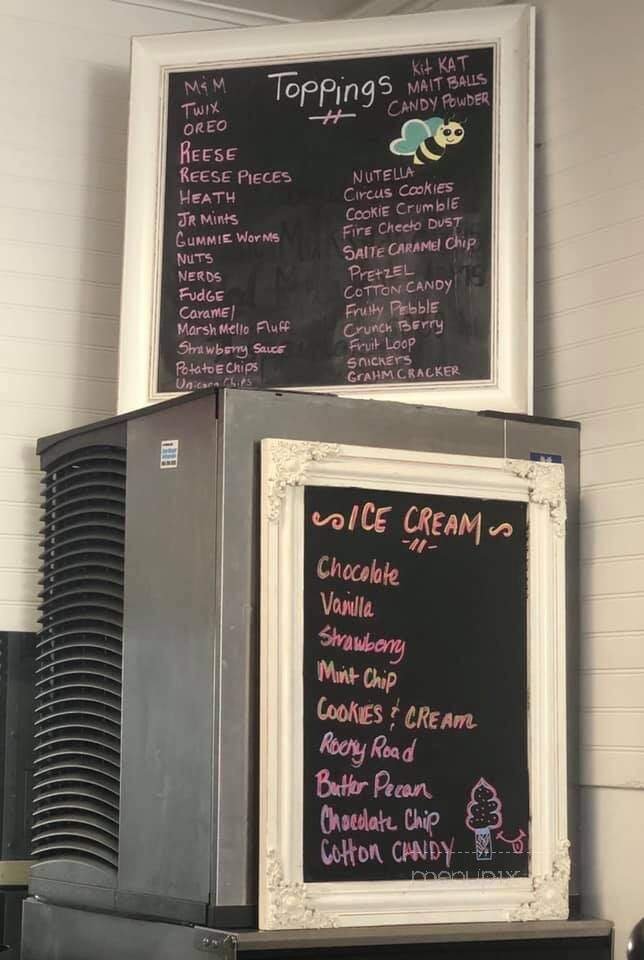 Toppings
M&M
TWIX
OREO
REESE
REESE PIECES
HEATH
JR Mints
GUMMIE WORMS
NUTS
NERDS
FUDGE
CARAMEl
MARSHMELLO FLUFF
Strawberry Sauce
Potatoe Chips
Unicorn Chips
Kit KAT
MAlT BALLS
CANDY POWDER
NUTELLA
Circus Cookies
Cookie Crumble
Fire Cheeto DUST
SAlTE CARAMEl Chip
PRETZEL
COTTON CANDY
Fruity Pebble
Crunch BErry
Fruit Loop
SNICKERS
GRAHM CRACKER
ICE CREAM
Chocolate
Vanilla
Strawberry
Mint Chip
COOKIES & CREAM
Rocky Road
Butter Pecan
Chocolate Chip
Cotton CANDY
menupix